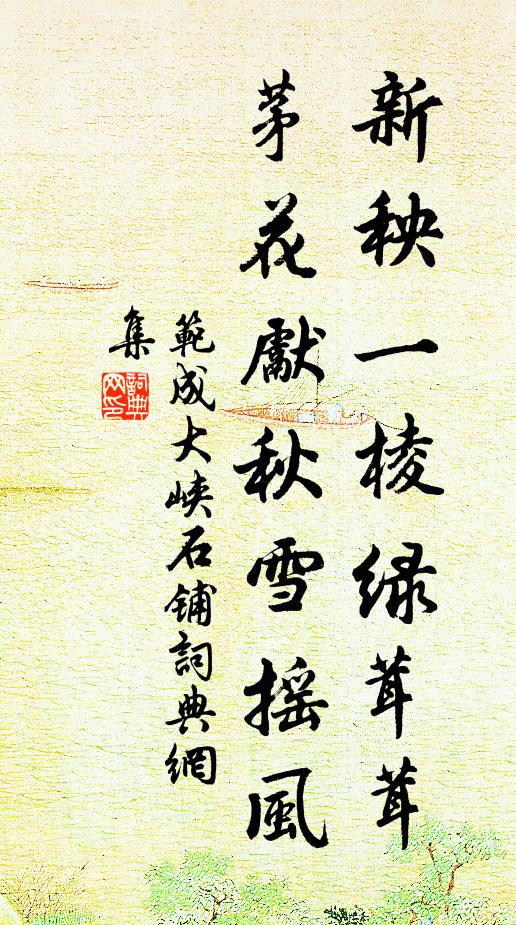 新秧一棱绿茸茸
茅花獻秋雪摇風
範成大峽石鋪詞典網
集
詞典网印